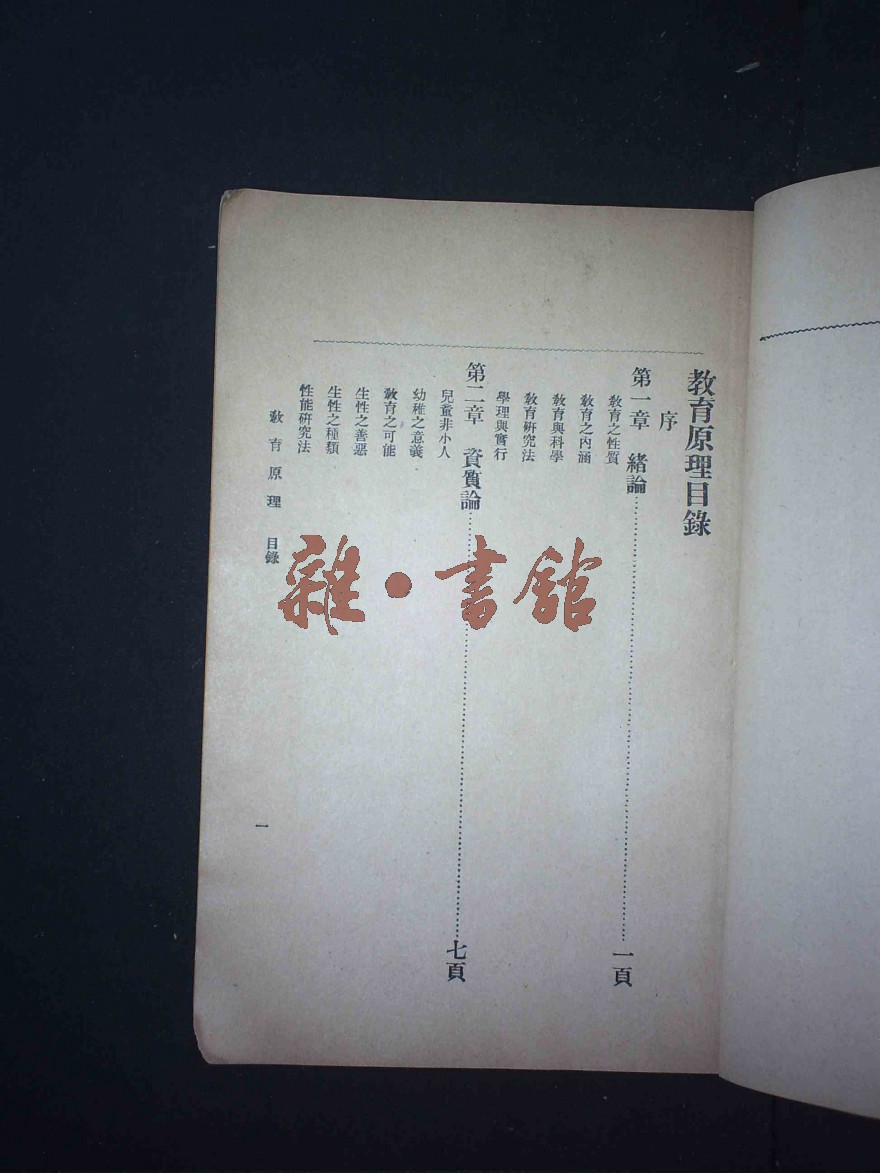 教育原理目錄
序
第一章 緒論 一頁
教育之性質
教育之內涵
教育與科學
教育研究法
學理與實行
第二章 資質論 七頁
兒童非小人
幼稚之意義
教育之可能
生性之善惡
生性之種類
性能研究法
教育原理 目錄
一
雜·書館